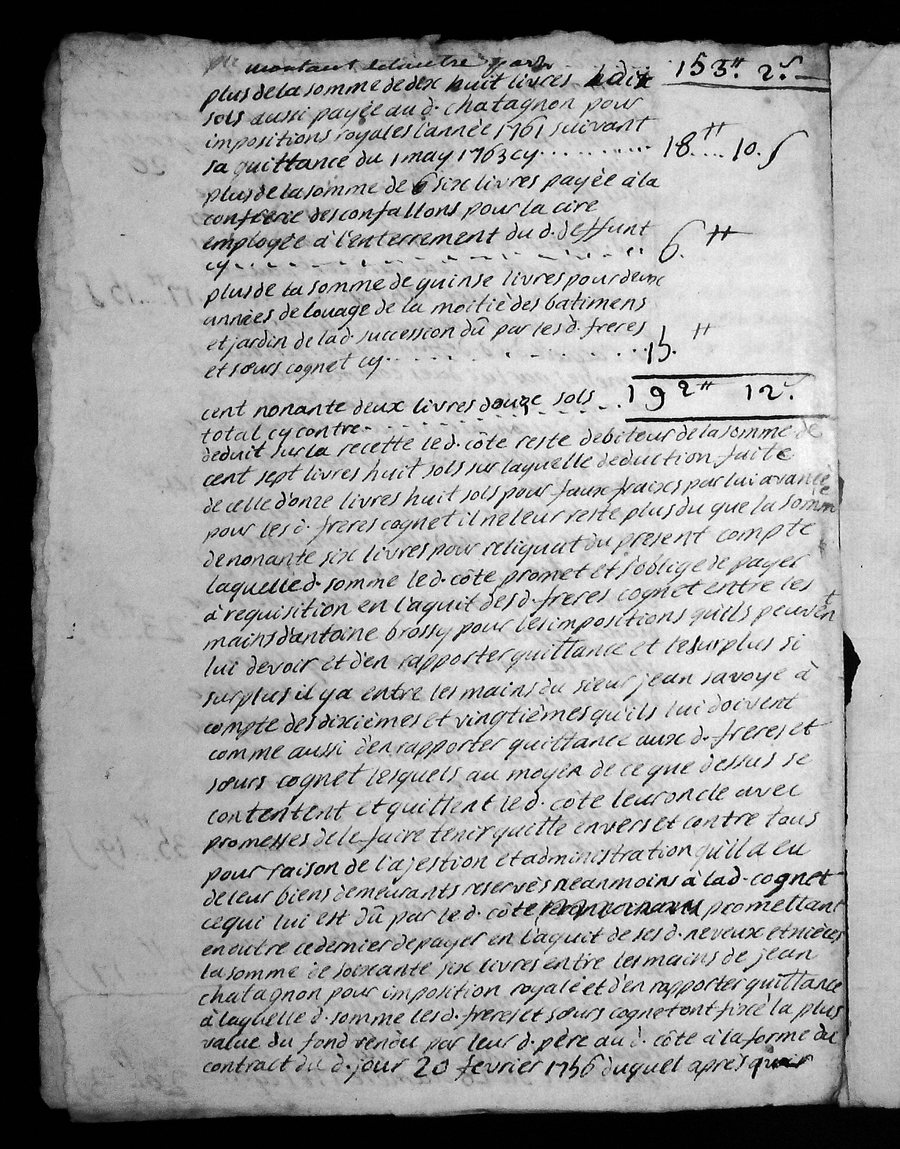 montant de l'autre part 153.tt 2.s
plus de la somme de dix huit livres & dix
sols aussi payée au d. chatagnon pour
impositions royales l'année 1761 suivant
sa quittance du 1 may 1763 cy......... 18.tt.... 10.s
plus de la somme de 6 six livres payée à la
confrerie des confallons pour la cire
employée à l'enterrement du d. deffunt
cy............ 6.tt
plus de la somme de quinse livres pour deux
années de louage de la moitié des batimens
et jardin de la d. succession dû par les d. freres
et sœurs cognet cy............ 15.tt
cent nonante deux livres douze sols 192tt 12.s
total cy contre............
deduit sur la recette le d. côte reste debiteur de la somme de
cent sept livres huit sols sur laquelle deduction faite
de celle d'onze livres huit sols pour faux fraixs par lui avancée
pour les d. freres cognet il ne leur reste plus du que la somme
de nonante six livres pour reliquat du present compte
laquelle d. somme le d. côte promet et s'oblige de payer
à requisition en l'aquit des d. freres cognet entre les
mains d'antoine brossy pour les impositions qu'ils peuvent
lui devoir et d'en rapporter quittance et le surplus si
surplus il y a entre les mains du sieur jean savoye à
compte des dixièmes et vingtièmes qu'ils lui doivent
comme aussi d'en rapporter quittance aux d. freres et
sœurs cognet lesquels au moyen de ce que dessus se
contentent et quittent le d. côte leur oncle avec
promesses de le faire tenir quitte envers et contre tous
pour raison de l'ajestion et administration qu'il a eu
de leur biens demeurants reservés néanmoins à la d. cognet
ce qui lui est dû par le d. côte promettant
en outre ce dernier de payer en l'aquit de ses d. neveux et nièces
la somme de soixante six livres entre les mains de jean
chatagnon pour imposition royale et d'en rapporter quittance
à laquelle d. somme les d. freres et sœurs cognet ont fixé la plus
value du fond vendu par leur d. père au d. côte à la forme du
contract du d. jour 20 fevrier 1756 duquel après